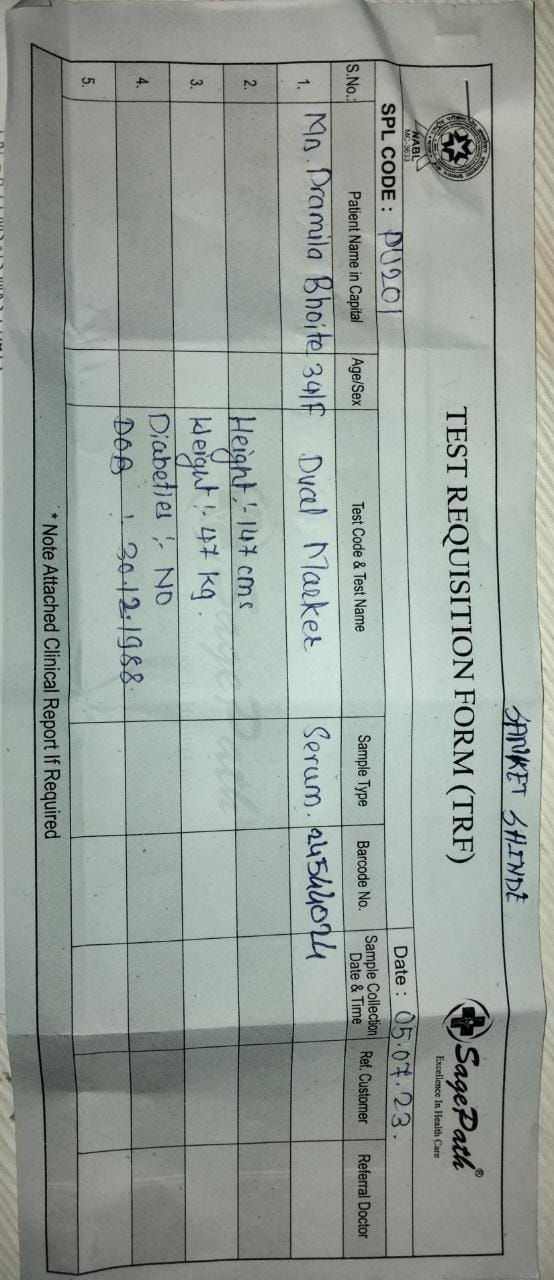 SANKET SHINDE
NABL
MC-3633
TEST REQUISITION FORM (TRF)
SagePath®
Excellence In Health Care
SPL CODE : PU201
Date : 05.07.23.
S.No.: Patient Name in Capital Age/Sex Test Code & Test Name Sample Type Barcode No. Sample Collection Date & Time Ref. Customer Referral Doctor
1. Mn. Pramila Bhoite 34/F Dual Marker Serum. 24544024
2. Height :- 147 cms
3. Weight :- 47 kg.
4. Diabeties :- NO
DOB : 30.12.1988.
5.
* Note Attached Clinical Report If Required